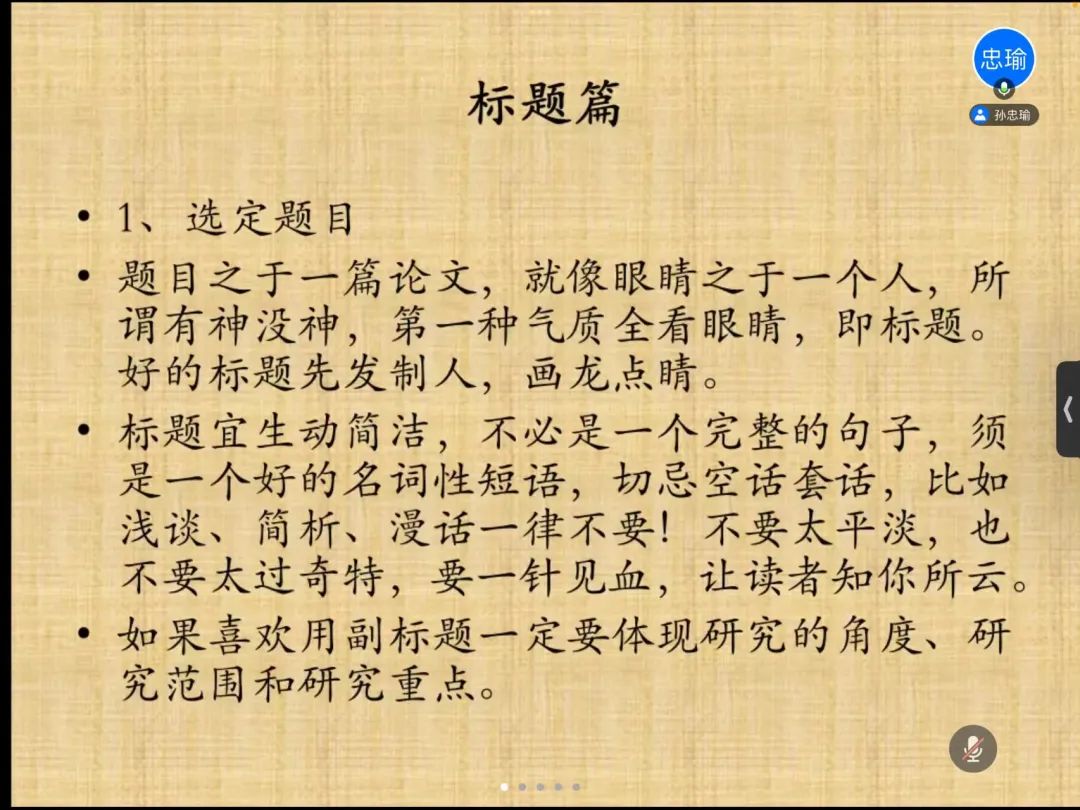 忠瑜
孙忠瑜
标题篇
• 1、选定题目
• 题目之于一篇论文，就像眼睛之于一个人，所
谓有神没神，第一种气质全看眼睛，即标题。
好的标题先发制人，画龙点睛。
• 标题宜生动简洁，不必是一个完整的句子，须
是一个好的名词性短语，切忌空话套话，比如
浅谈、简析、漫话一律不要！不要太平淡，也
不要太过奇特，要一针见血，让读者知你所云。
• 如果喜欢用副标题一定要体现研究的角度、研
究范围和研究重点。